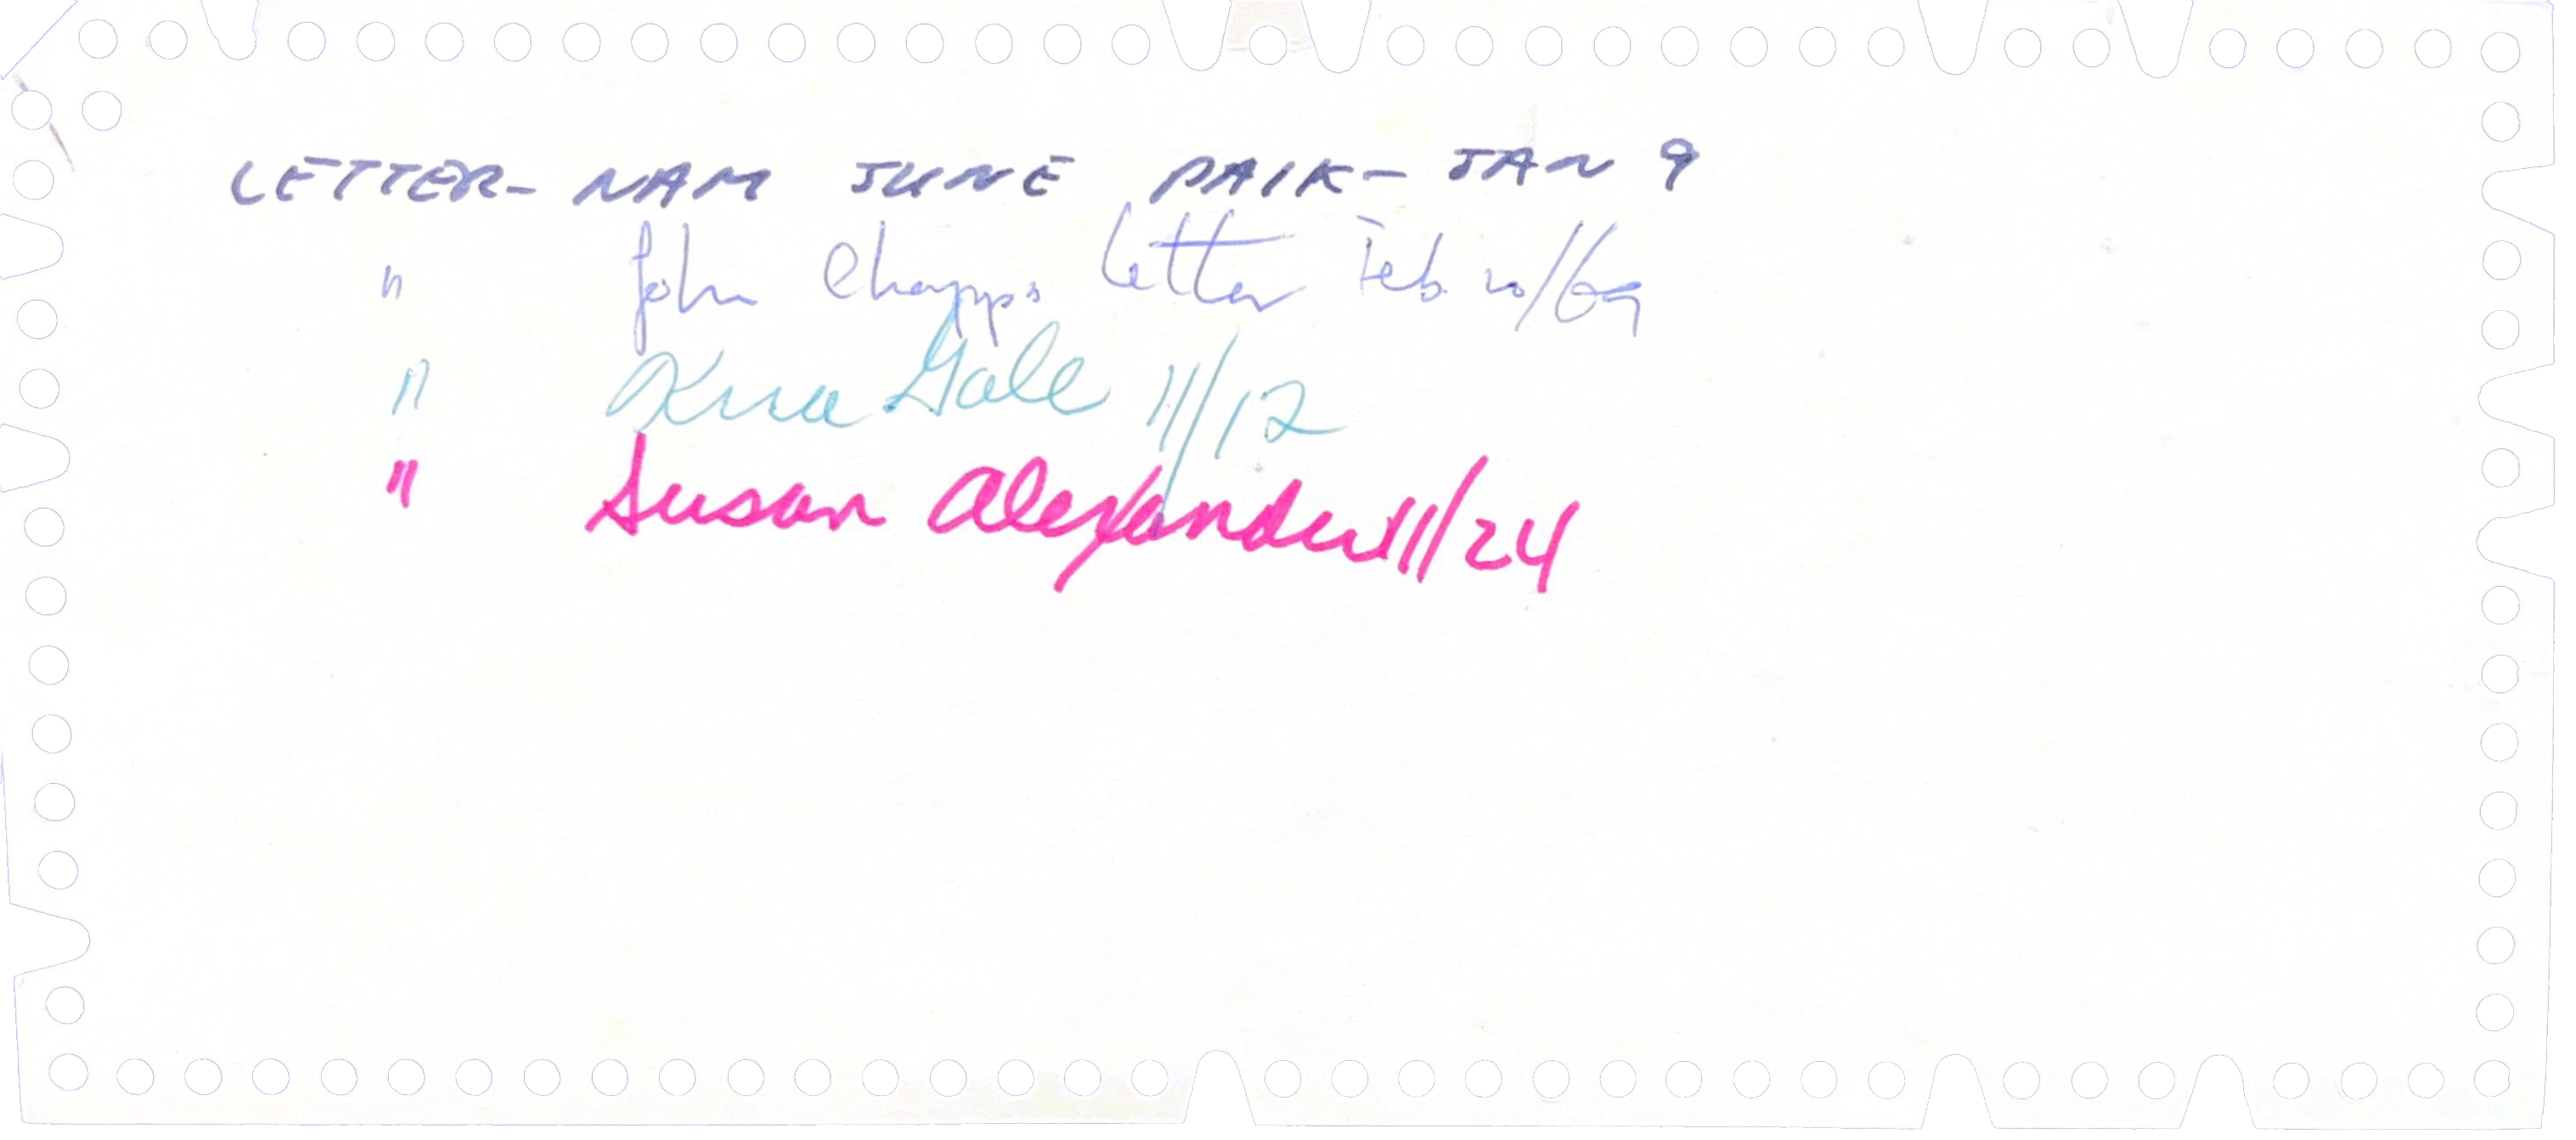 LETTER- NAM JUNE PAIK- JAN 9
" John Letter Feb 20/69
" Gale 11/12
" Susan Alexander 11/24